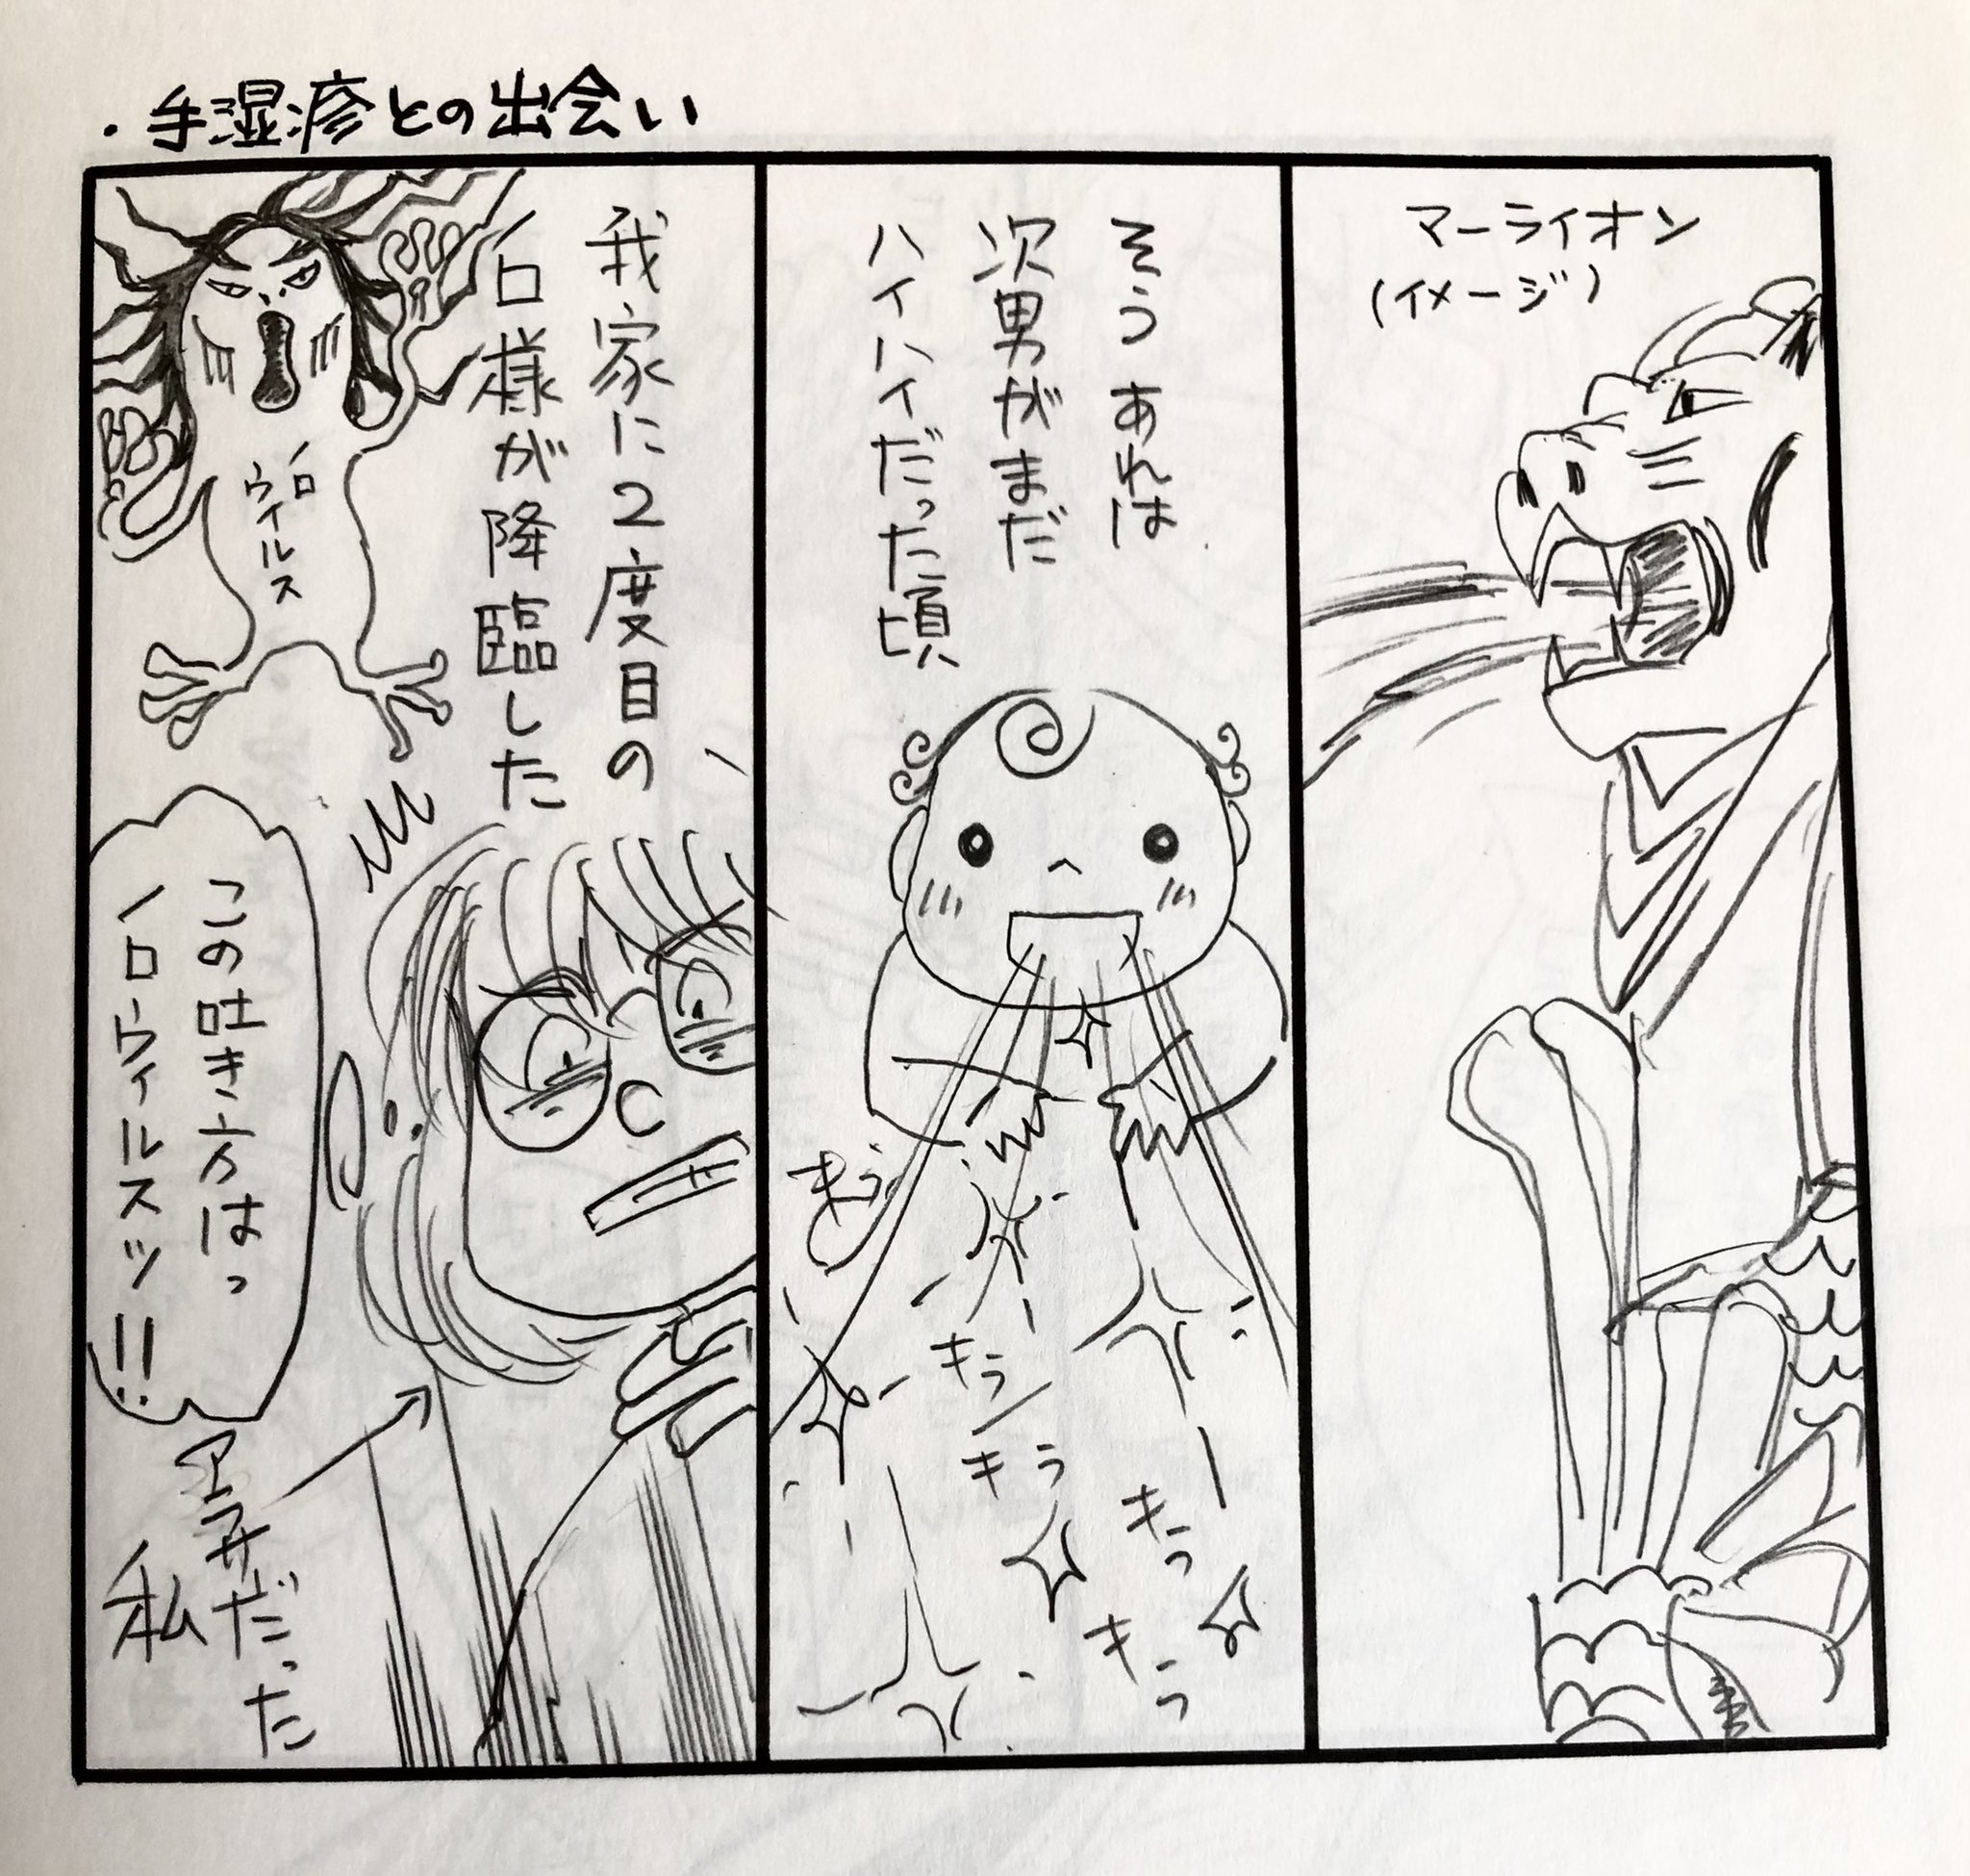 ・手湿疹との出会い
マーライオン
(イメージ)
そう あれは
次男がまだ
ハイハイだった頃
キラ
キラ
キラ
キラ
我家に2度目の
ノロ様が降臨した
ノロ
ウイルス
この吐き方はっ
ノロウィルスッ!!
だった
私